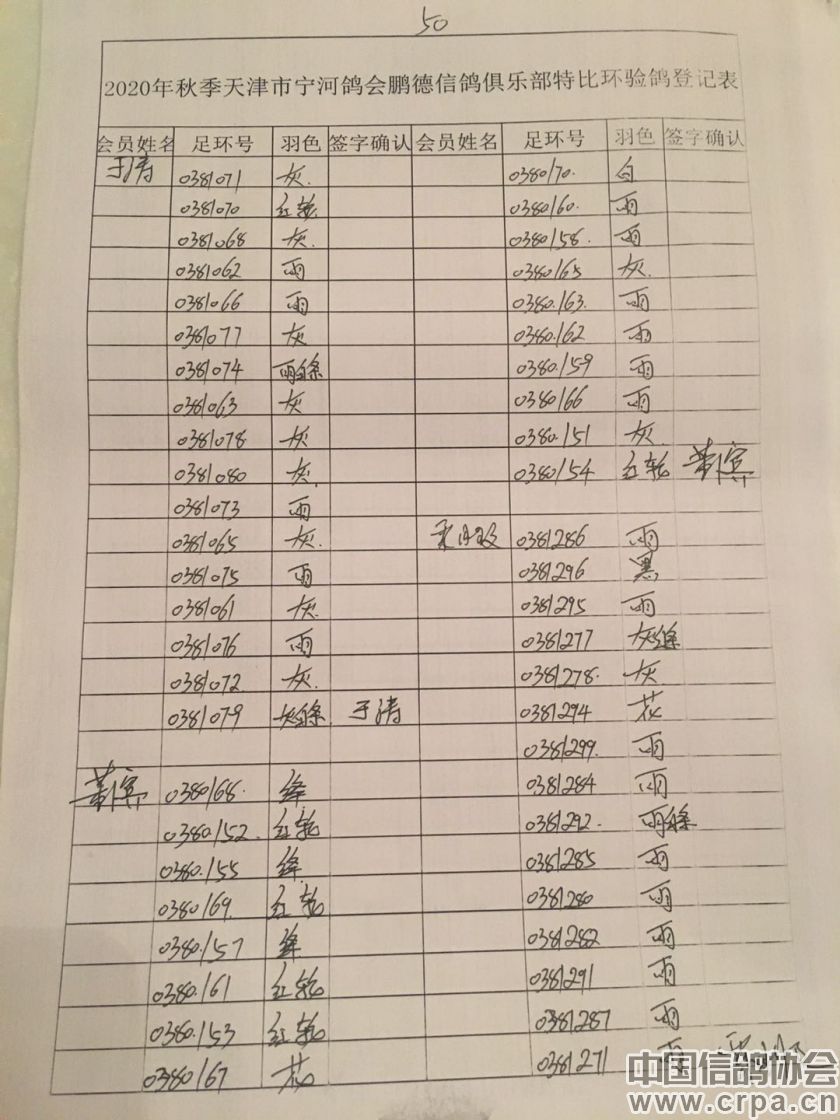 50
2020年秋季天津市宁河鸽会鹏德信鸽俱乐部特比环验鸽登记表
会员姓名 足环号 羽色 签字确认 会员姓名 足环号 羽色 签字确认
于涛 0381071 灰 0380170 白
0381070 红轮 0380160 雨
0381068 灰 0380158 雨
0381062 雨 0380165 灰
0381066 雨 0380163 雨
0381077 灰 0380162 雨
0381074 雨白条 0380159 雨
0381063 灰 0380166 雨
0381078 灰 0380151 灰
0381080 灰 0380154 红轮
0381073 雨
0381065 灰 0381286 雨
0381075 雨 0381296 黑
0381061 灰 0381295 雨
0381076 雨 0381277 灰白条
0381072 灰 0381278 灰
0381079 灰白条 于涛 0381294 花
0381299 雨
0380168 绛 0381284 雨
0380152 红轮 0381292 雨白条
0380155 绛 0381285 雨
0380169 红轮 0381280 雨
0380157 绛 0381282 雨
0380161 红轮 0381291 雨
0380153 红轮 0381287 雨
0380167 花 0381271 雨
中国信鸽协会
www.crpa.cn